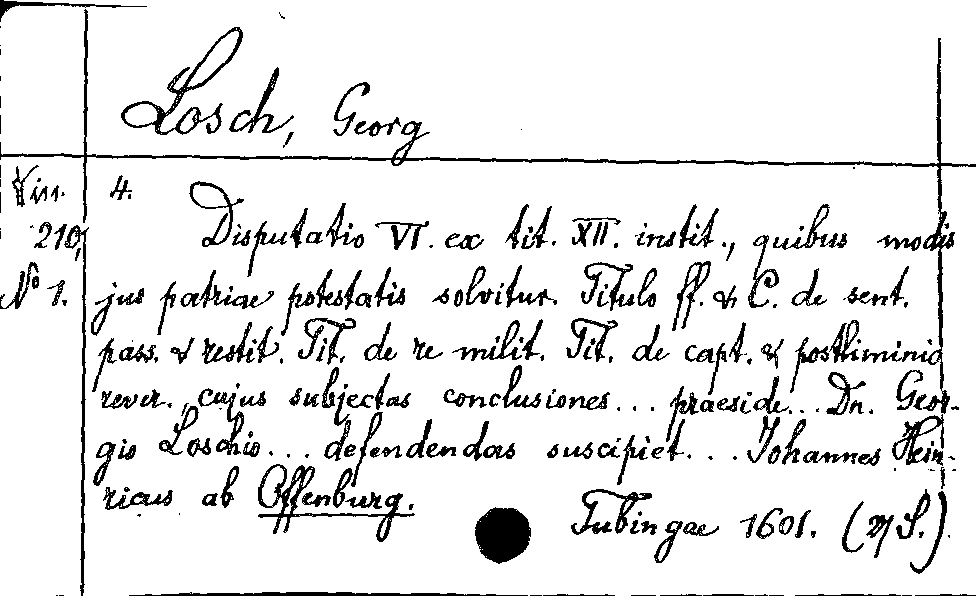 Losch, Georg
Diss. 4.
210, Disputatio VI. ex tit. XII. instit., quibus modis
No 1. jus patriae potestatis solvitur. Titulo ff. & C. de sent.
pass. & restit. Tit. de re milit. Tit. de capt. & postliminio
rever. cujus subjectas conclusiones... praeside... Dn. Geor-
gio Loschio... defendendas suscipiet... Johannes Hein-
ricus ab Offenburg.
Tubingae 1601. (21 S.)